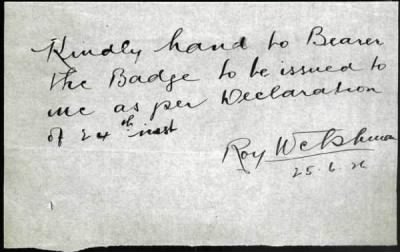 Kindly hand to Bearer
the Badge to be issued to
me as per Declaration
of 24th inst
Roy Welshman
25.6.26